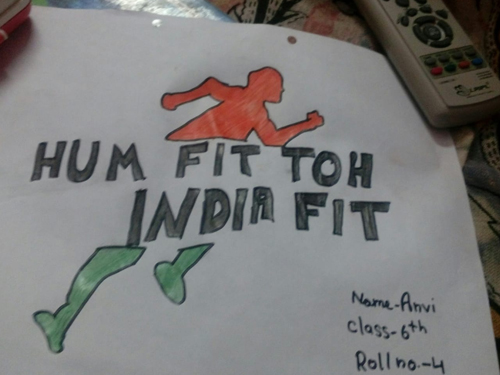 HUM FIT TOH
INDIA FIT
Name-Anvi
class-6th
Roll no.-4